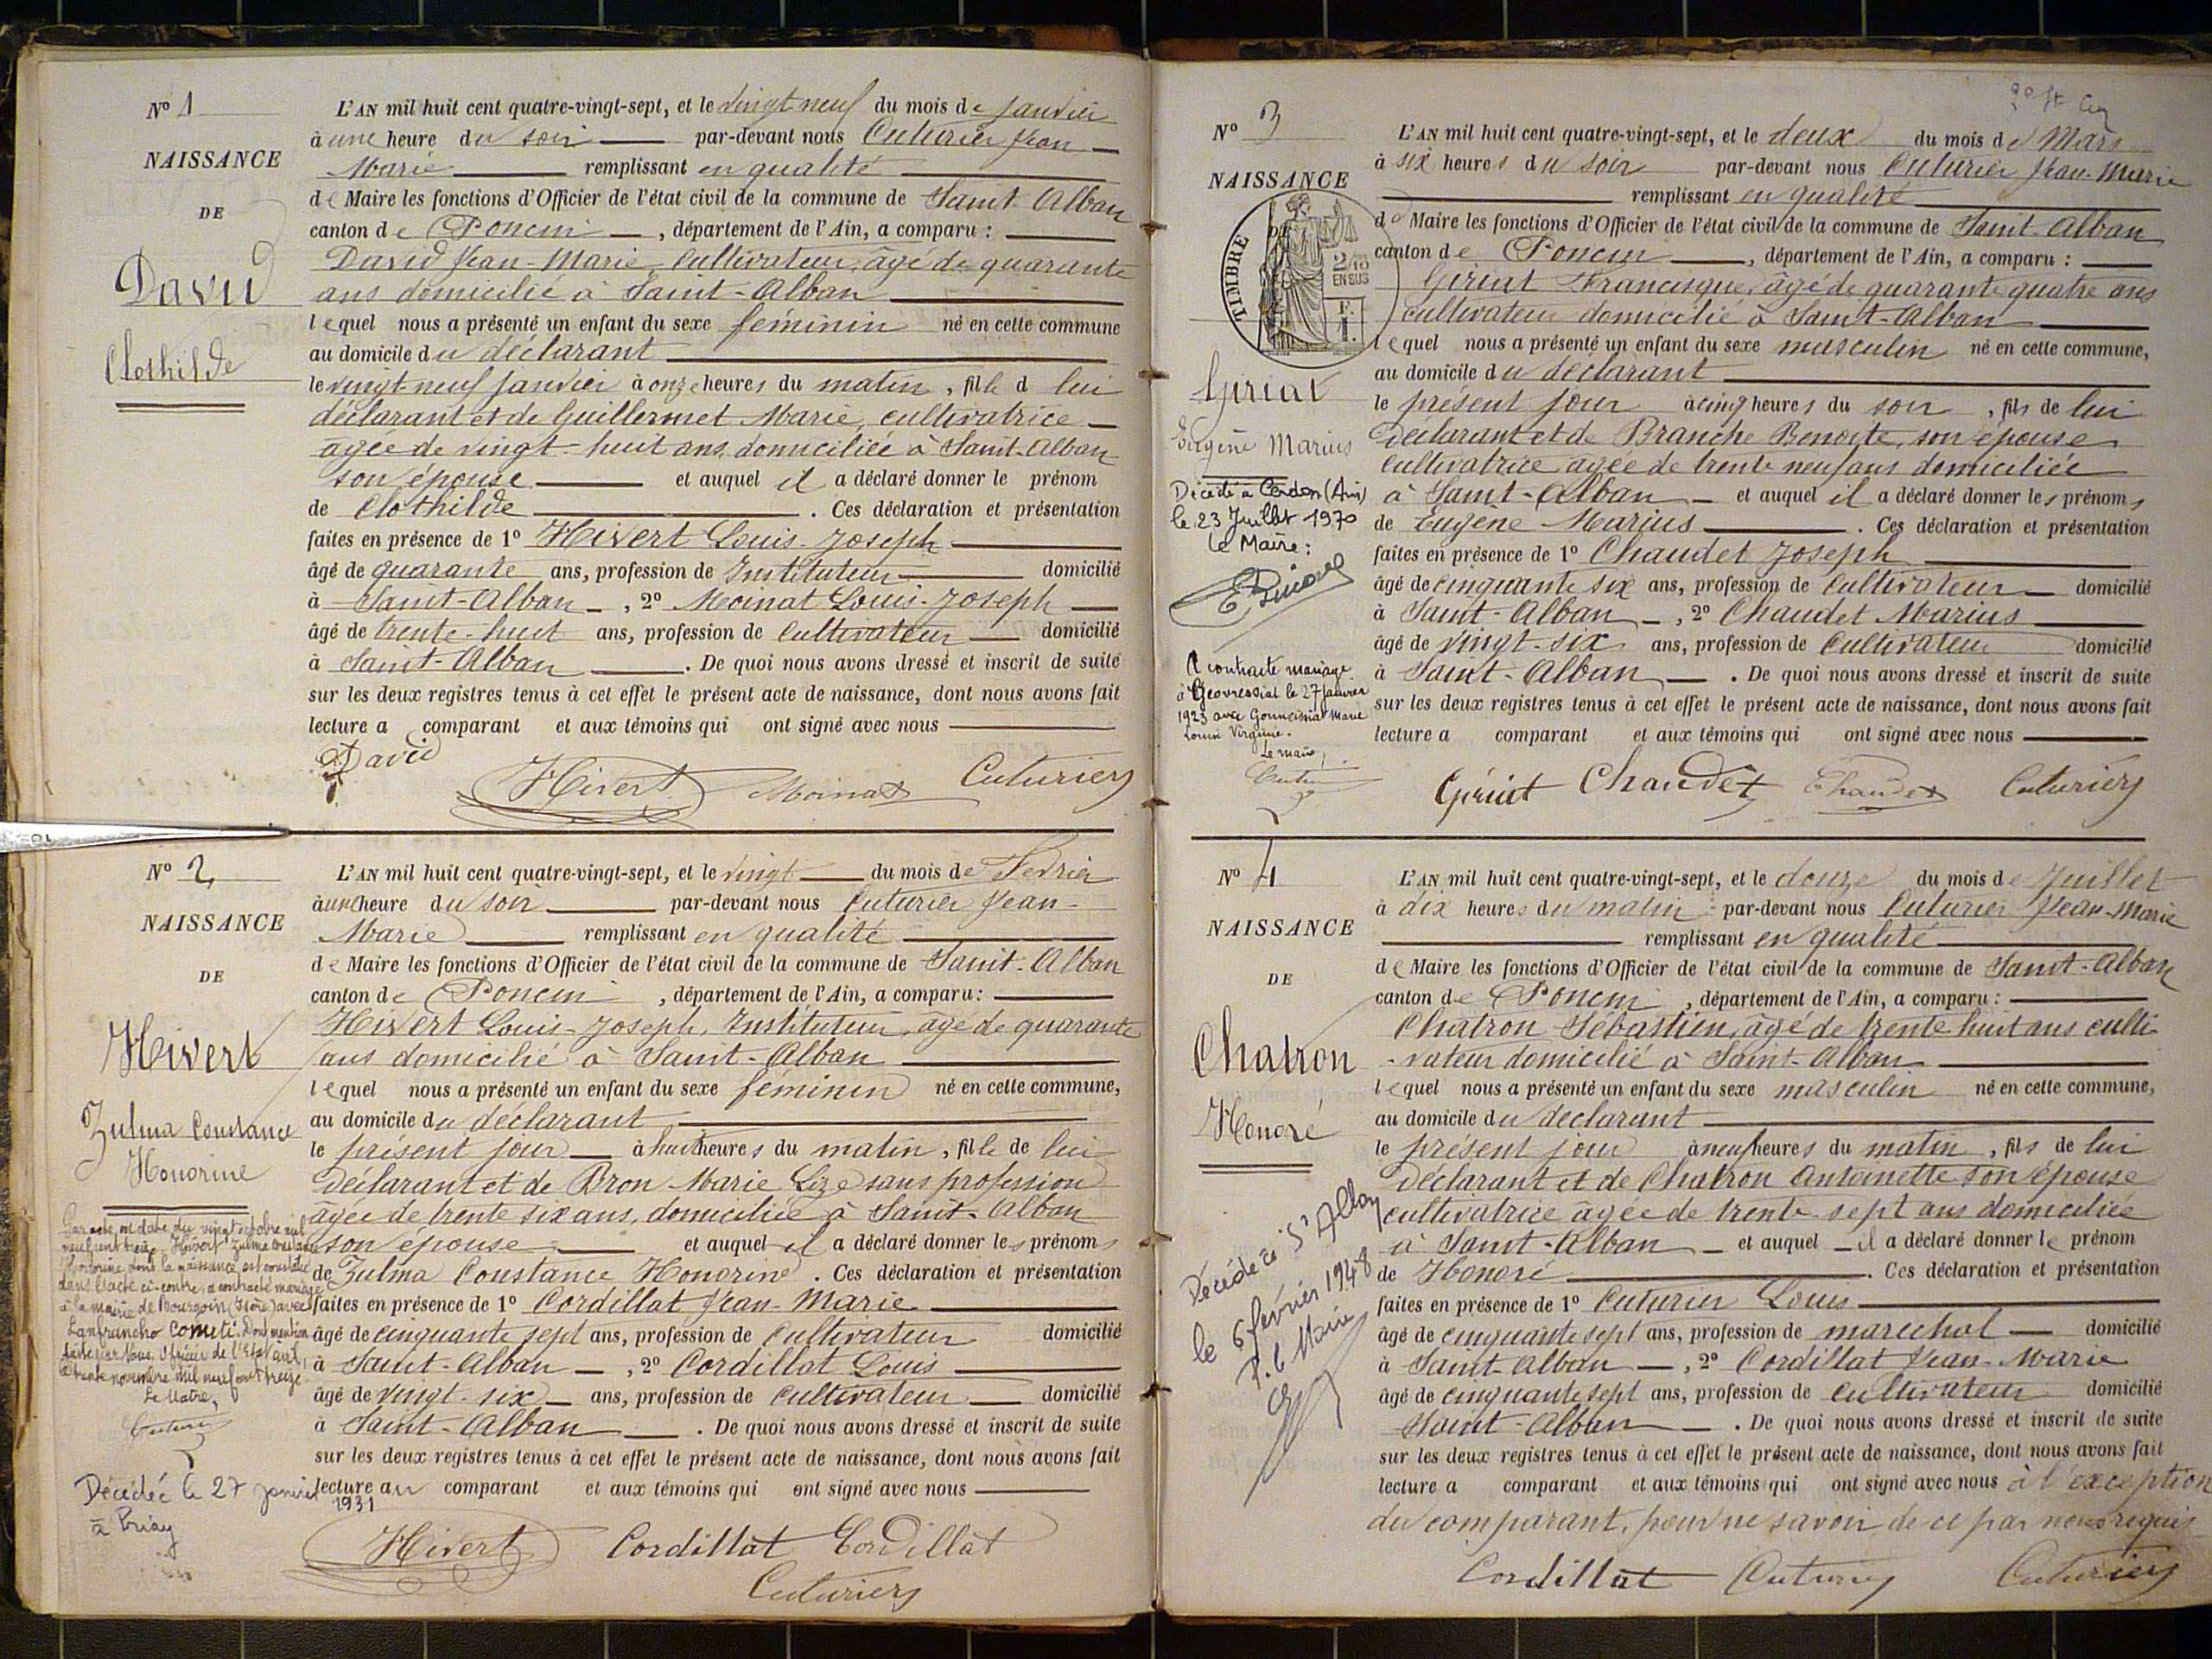 N° 1
NAISSANCE
DE
David
Clothilde
L'AN mil huit cent quatre-vingt-sept, et le vingt neuf du mois de janvier
à une heure du soir par-devant nous Cuturier Jean
Marie remplissant en qualité
de Maire les fonctions d'Officier de l'état civil de la commune de Saint-Alban
canton de Poncin, département de l'Ain, a comparu :
David Jean-Marie Cultivateur, âgé de quarante
ans domicilié à Saint-Alban
lequel nous a présenté un enfant du sexe féminin né en cette commune
au domicile du déclarant
le vingt neuf janvier à onze heures du matin, fille d lui
déclarant et de Guillermet Marie, cultivatrice
âgée de vingt-huit ans, domiciliée à Saint-Alban
son épouse et auquel il a déclaré donner le prénom
de Clothilde. Ces déclaration et présentation
faites en présence de 1° Hivert Louis-Joseph
âgé de quarante ans, profession de Instituteur domicilié
à Saint-Alban, 2° Moinat Louis-Joseph
âgé de trente-huit ans, profession de Cultivateur domicilié
à Saint-Alban. De quoi nous avons dressé et inscrit de suite
sur les deux registres tenus à cet effet le présent acte de naissance, dont nous avons fait
lecture a comparant et aux témoins qui ont signé avec nous
David
Hivert Moinat Cuturier
N° 2
NAISSANCE
DE
Hivert
Zulma Constance
Honorine
Par acte en date du vingt octobre mil
neuf cent treize, Hivert Zulma Constance
Honorine dont la naissance est constatée
dans l'acte ci-contre, a contracté mariage
à la mairie de Bourgoin (Isère) avec
Lanfrancho Cometi. Dont mention
faite par Nous, Officier de l'Etat civil,
le trente novembre mil neuf cent treize.
Le Maire,
Cuturier
Décédée le 27 janvier
1931
à Priay
L'AN mil huit cent quatre-vingt-sept, et le vingt du mois de Fevrier
à une heure du soir par-devant nous Cuturier Jean-
Marie remplissant en qualité
de Maire les fonctions d'Officier de l'état civil de la commune de Saint-Alban
canton de Poncin, département de l'Ain, a comparu :
Hivert Louis-Joseph, Instituteur, âgé de quarante
ans domicilié à Saint-Alban
lequel nous a présenté un enfant du sexe féminin né en cette commune,
au domicile du déclarant
le présent jour à huit heures du matin, fille de lui
déclarant et de Bron Marie Lize sans profession
âgée de trente six ans, domiciliée à Saint-Alban
son épouse et auquel il a déclaré donner les prénoms
de Zulma Constance Honorine. Ces déclaration et présentation
faites en présence de 1° Cordillat Jean-Marie
âgé de cinquante sept ans, profession de Cultivateur domicilié
à Saint-Alban, 2° Cordillat Louis
âgé de vingt-six ans, profession de cultivateur domicilié
à Saint-Alban. De quoi nous avons dressé et inscrit de suite
sur les deux registres tenus à cet effet le présent acte de naissance, dont nous avons fait
lecture au comparant et aux témoins qui ont signé avec nous
Hivert Cordillat Cordillat
Cuturier
N° 3
NAISSANCE
TIMBRE
2/10
EN SUS
F.
1.
Giriat
Eugène Marius
Décédé à Cerdon (Ain)
le 23 Juillet 1970
Le Maire :
A contracté mariage
à Géovressiat le 27 janvier
1923 avec Gonnessiat Marie
Louise Virginie.
Le maire,
Cuturier
L'AN mil huit cent quatre-vingt-sept, et le deux du mois de Mars
à six heures du soir par-devant nous Cuturier Jean-Marie
remplissant en qualité
de Maire les fonctions d'Officier de l'état civil de la commune de Saint-Alban
canton de Poncin, département de l'Ain, a comparu :
Giriat Francisque, âgé de quarante quatre ans
cultivateur domicilié à Saint-Alban
lequel nous a présenté un enfant du sexe masculin né en cette commune,
au domicile du déclarant
le présent jour à cinq heures du soir, fils de lui
déclarant et de Branche Benoite, son épouse
cultivatrice âgée de trente neuf ans domiciliée
à Saint-Alban et auquel il a déclaré donner les prénoms
de Eugène Marius. Ces déclaration et présentation
faites en présence de 1° Chaudet Joseph
âgé de cinquante six ans, profession de Cultivateur domicilié
à Saint-Alban, 2° Chaudet Marius
âgé de vingt-six ans, profession de Cultivateur domicilié
à Saint-Alban. De quoi nous avons dressé et inscrit de suite
sur les deux registres tenus à cet effet le présent acte de naissance, dont nous avons fait
lecture a comparant et aux témoins qui ont signé avec nous
Giriat Chaudet Chaudet Cuturier
N° 4
NAISSANCE
DE
Chatron
Honoré
Décédé à St Alban
le 6 février 1948
P. le Maire
L'AN mil huit cent quatre-vingt-sept, et le douze du mois de Juillet
à dix heures du matin par-devant nous Cuturier Jean-Marie
remplissant en qualité
de Maire les fonctions d'Officier de l'état civil de la commune de Saint-Alban
canton de Poncin, département de l'Ain, a comparu :
Chatron Sébastien, âgé de trente huit ans culti-
-vateur domicilié à Saint-Alban
lequel nous a présenté un enfant du sexe masculin né en cette commune,
au domicile du déclarant
le présent jour à neuf heures du matin, fils de lui
déclarant et de Chatron Antoinette son épouse
cultivatrice âgée de trente-sept ans domiciliée
à Saint-Alban et auquel il a déclaré donner le prénom
de Honoré. Ces déclaration et présentation
faites en présence de 1° Cuturier Louis
âgé de cinquante sept ans, profession de maréchal domicilié
à Saint-Alban, 2° Cordillat Jean-Marie
âgé de cinquante sept ans, profession de cultivateur domicilié
Saint-Alban. De quoi nous avons dressé et inscrit de suite
sur les deux registres tenus à cet effet le présent acte de naissance, dont nous avons fait
lecture a comparant et aux témoins qui ont signé avec nous à l'exception
du comparant, pour ne savoir de ce par nous requis
Cordillat Cuturier Cuturier